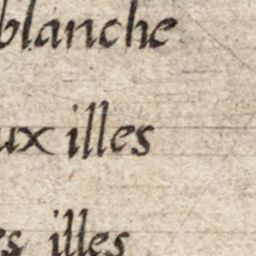 blanche
ux illes
es illes